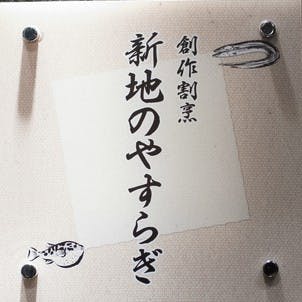 創作割烹
新地のやすらぎ